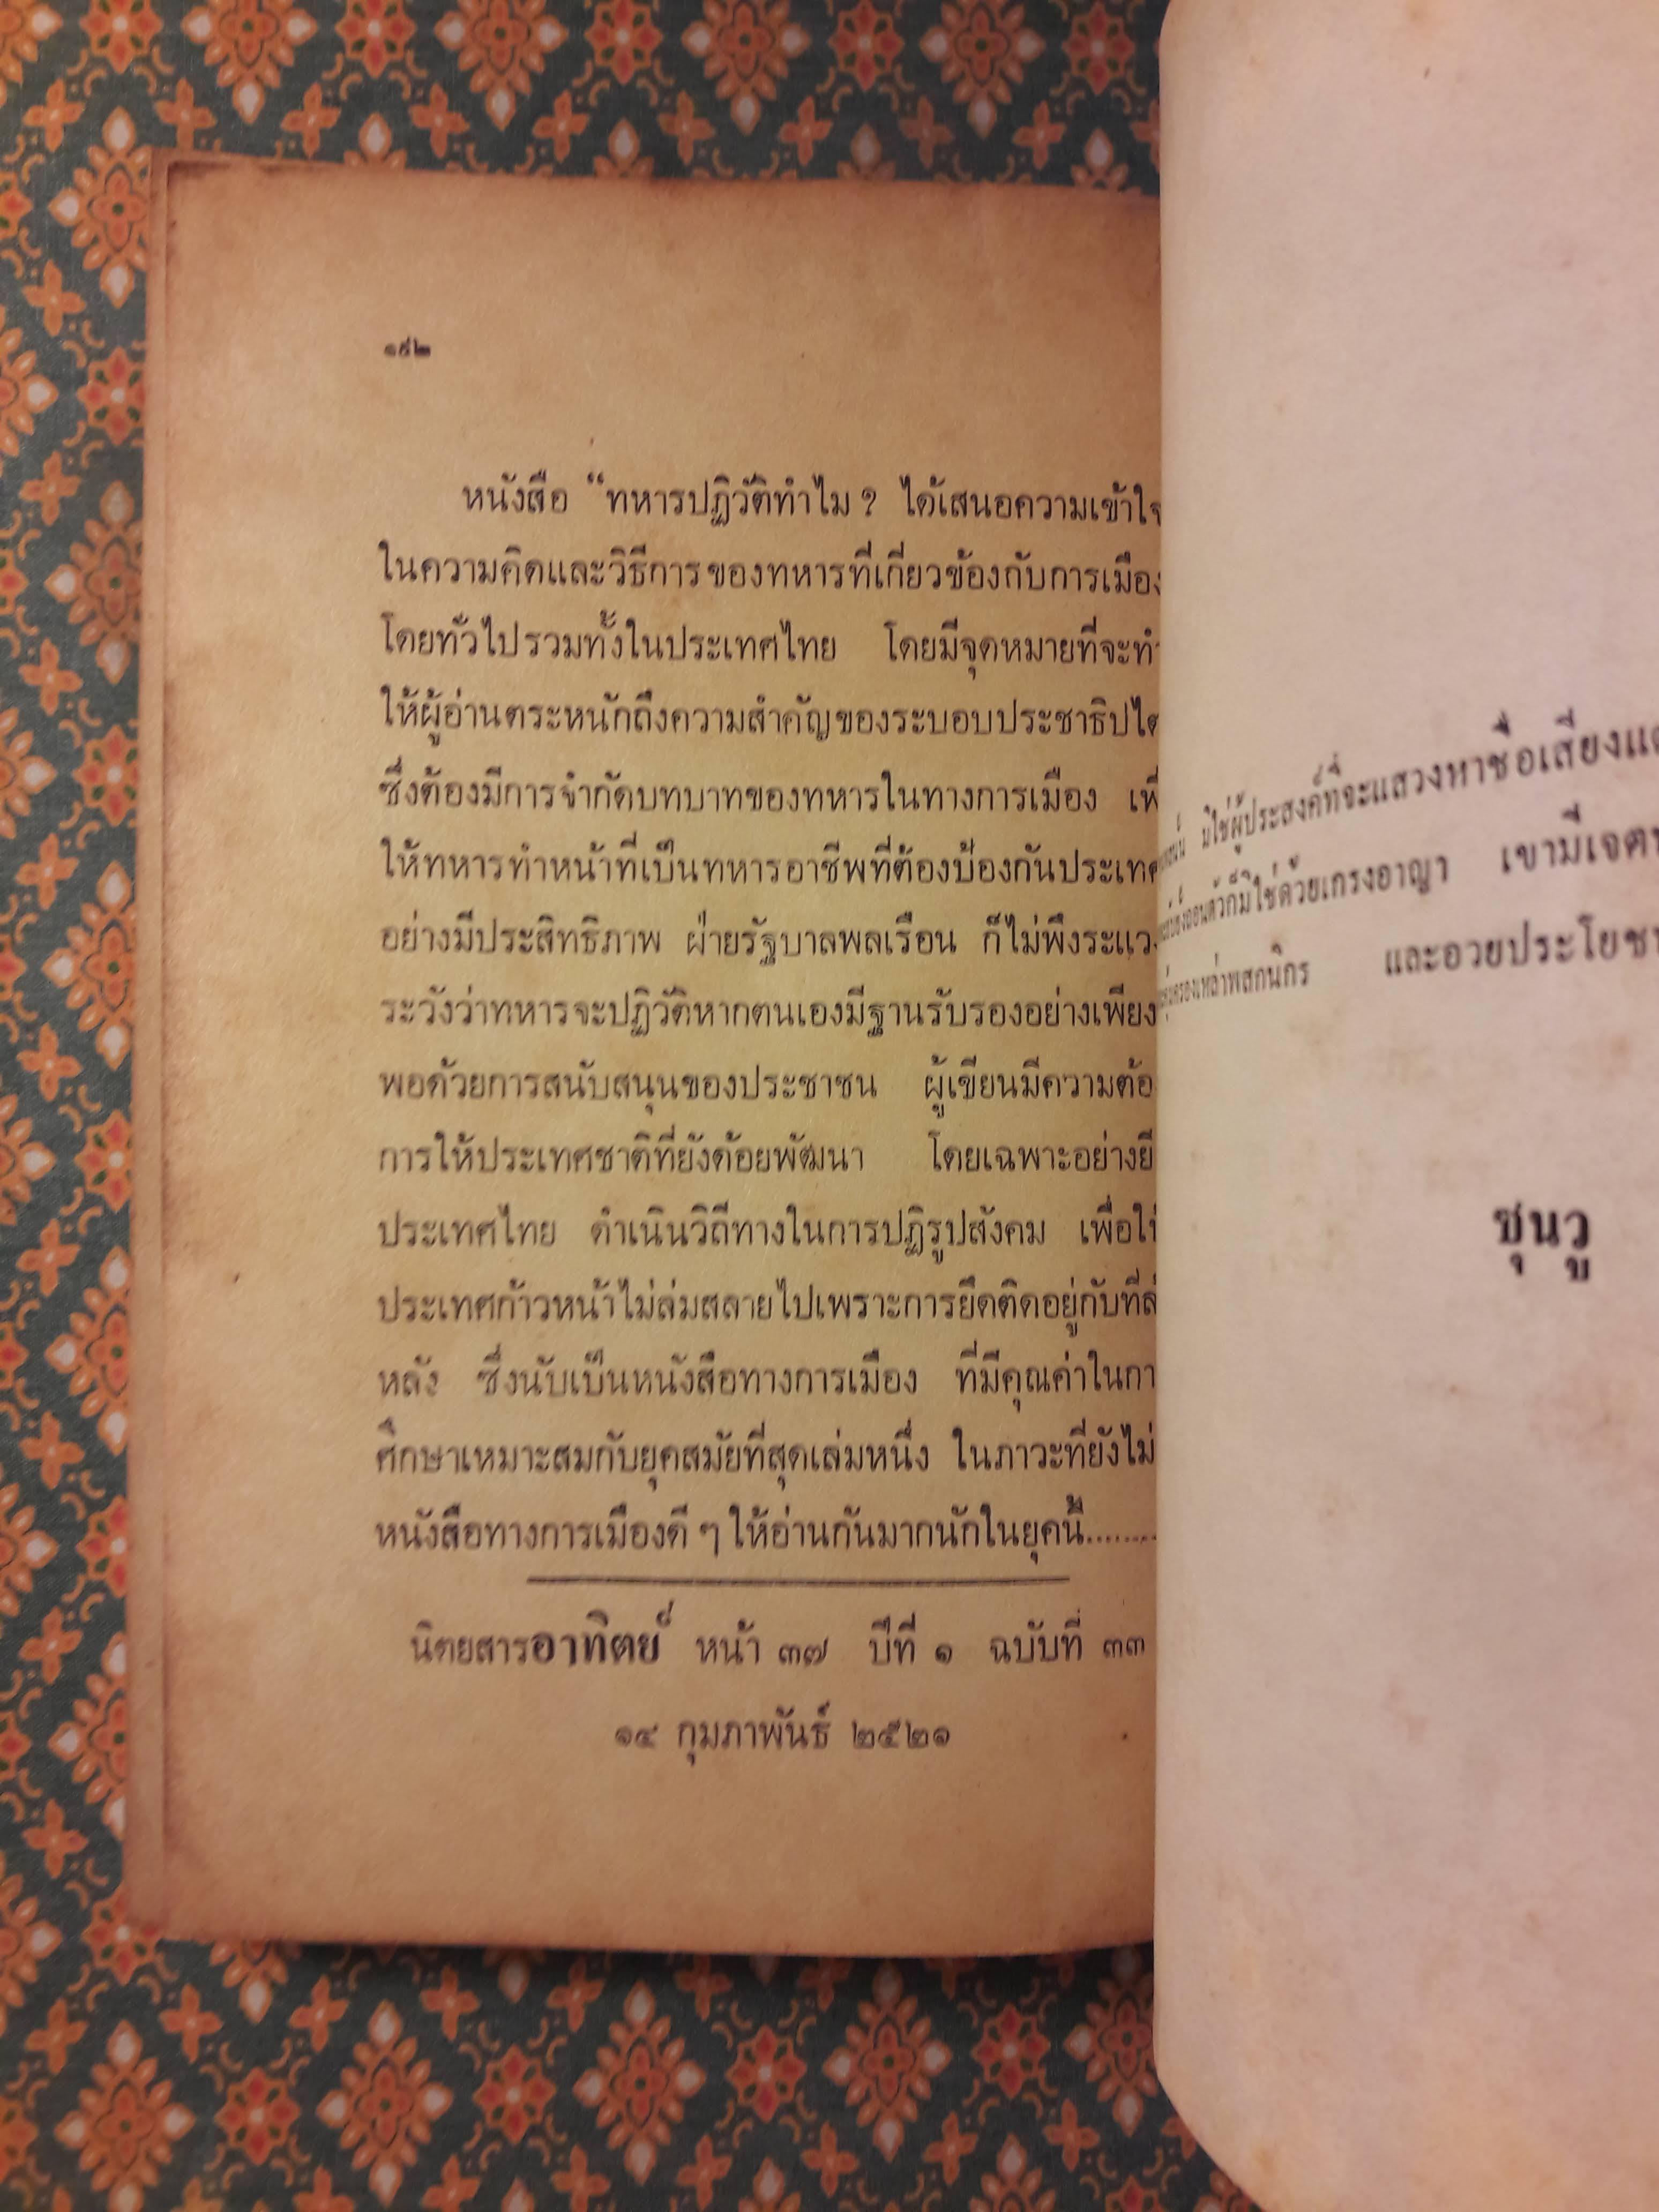 ๑๙๒
หนังสือ “ทหารปฏิวัติทำไม ? ได้เสนอความเข้าใจ
ในความคิดและวิธีการของทหารที่เกี่ยวข้องกับการเมือง
โดยทั่วไปรวมทั้งในประเทศไทย โดยมีจุดหมายที่จะทำ
ให้ผู้อ่านตระหนักถึงความสำคัญของระบอบประชาธิปไต
ซึ่งต้องมีการจำกัดบทบาทของทหารในทางการเมือง เพื่
ให้ทหารทำหน้าที่เป็นทหารอาชีพที่ต้องป้องกันประเทศ
อย่างมีประสิทธิภาพ ฝ่ายรัฐบาลพลเรือน ก็ไม่พึงระแวง
ระวังว่าทหารจะปฏิวัติหากตนเองมีฐานรับรองอย่างเพียง
พอด้วยการสนับสนุนของประชาชน ผู้เขียนมีความต้อ
การให้ประเทศชาติที่ยังด้อยพัฒนา โดยเฉพาะอย่างยิ่
ประเทศไทย ดำเนินวิถีทางในการปฏิรูปสังคม เพื่อให้
ประเทศก้าวหน้าไม่ล่มสลายไปเพราะการยึดติดอยู่กับที่ล้
หลัง ซึ่งนับเป็นหนังสือทางการเมือง ที่มีคุณค่าในกา
ศึกษาเหมาะสมกับยุคสมัยที่สุดเล่มหนึ่ง ในภาวะที่ยังไม่
หนังสือทางการเมืองดี ๆ ให้อ่านกันมากนักในยุคนี้........
นิตยสารอาทิตย์ หน้า ๓๗ ปีที่ ๑ ฉบับที่ ๓๓
๑๔ กุมภาพันธ์ ๒๕๒๑
มิใช่ผู้ประสงค์ที่จะแสวงหาชื่อเสียงแล
ก็มิใช่ด้วยเกรงอาญา เขามีเจตน
เหล่าพสกนิกร และอวยประโยชน
ซุนวู